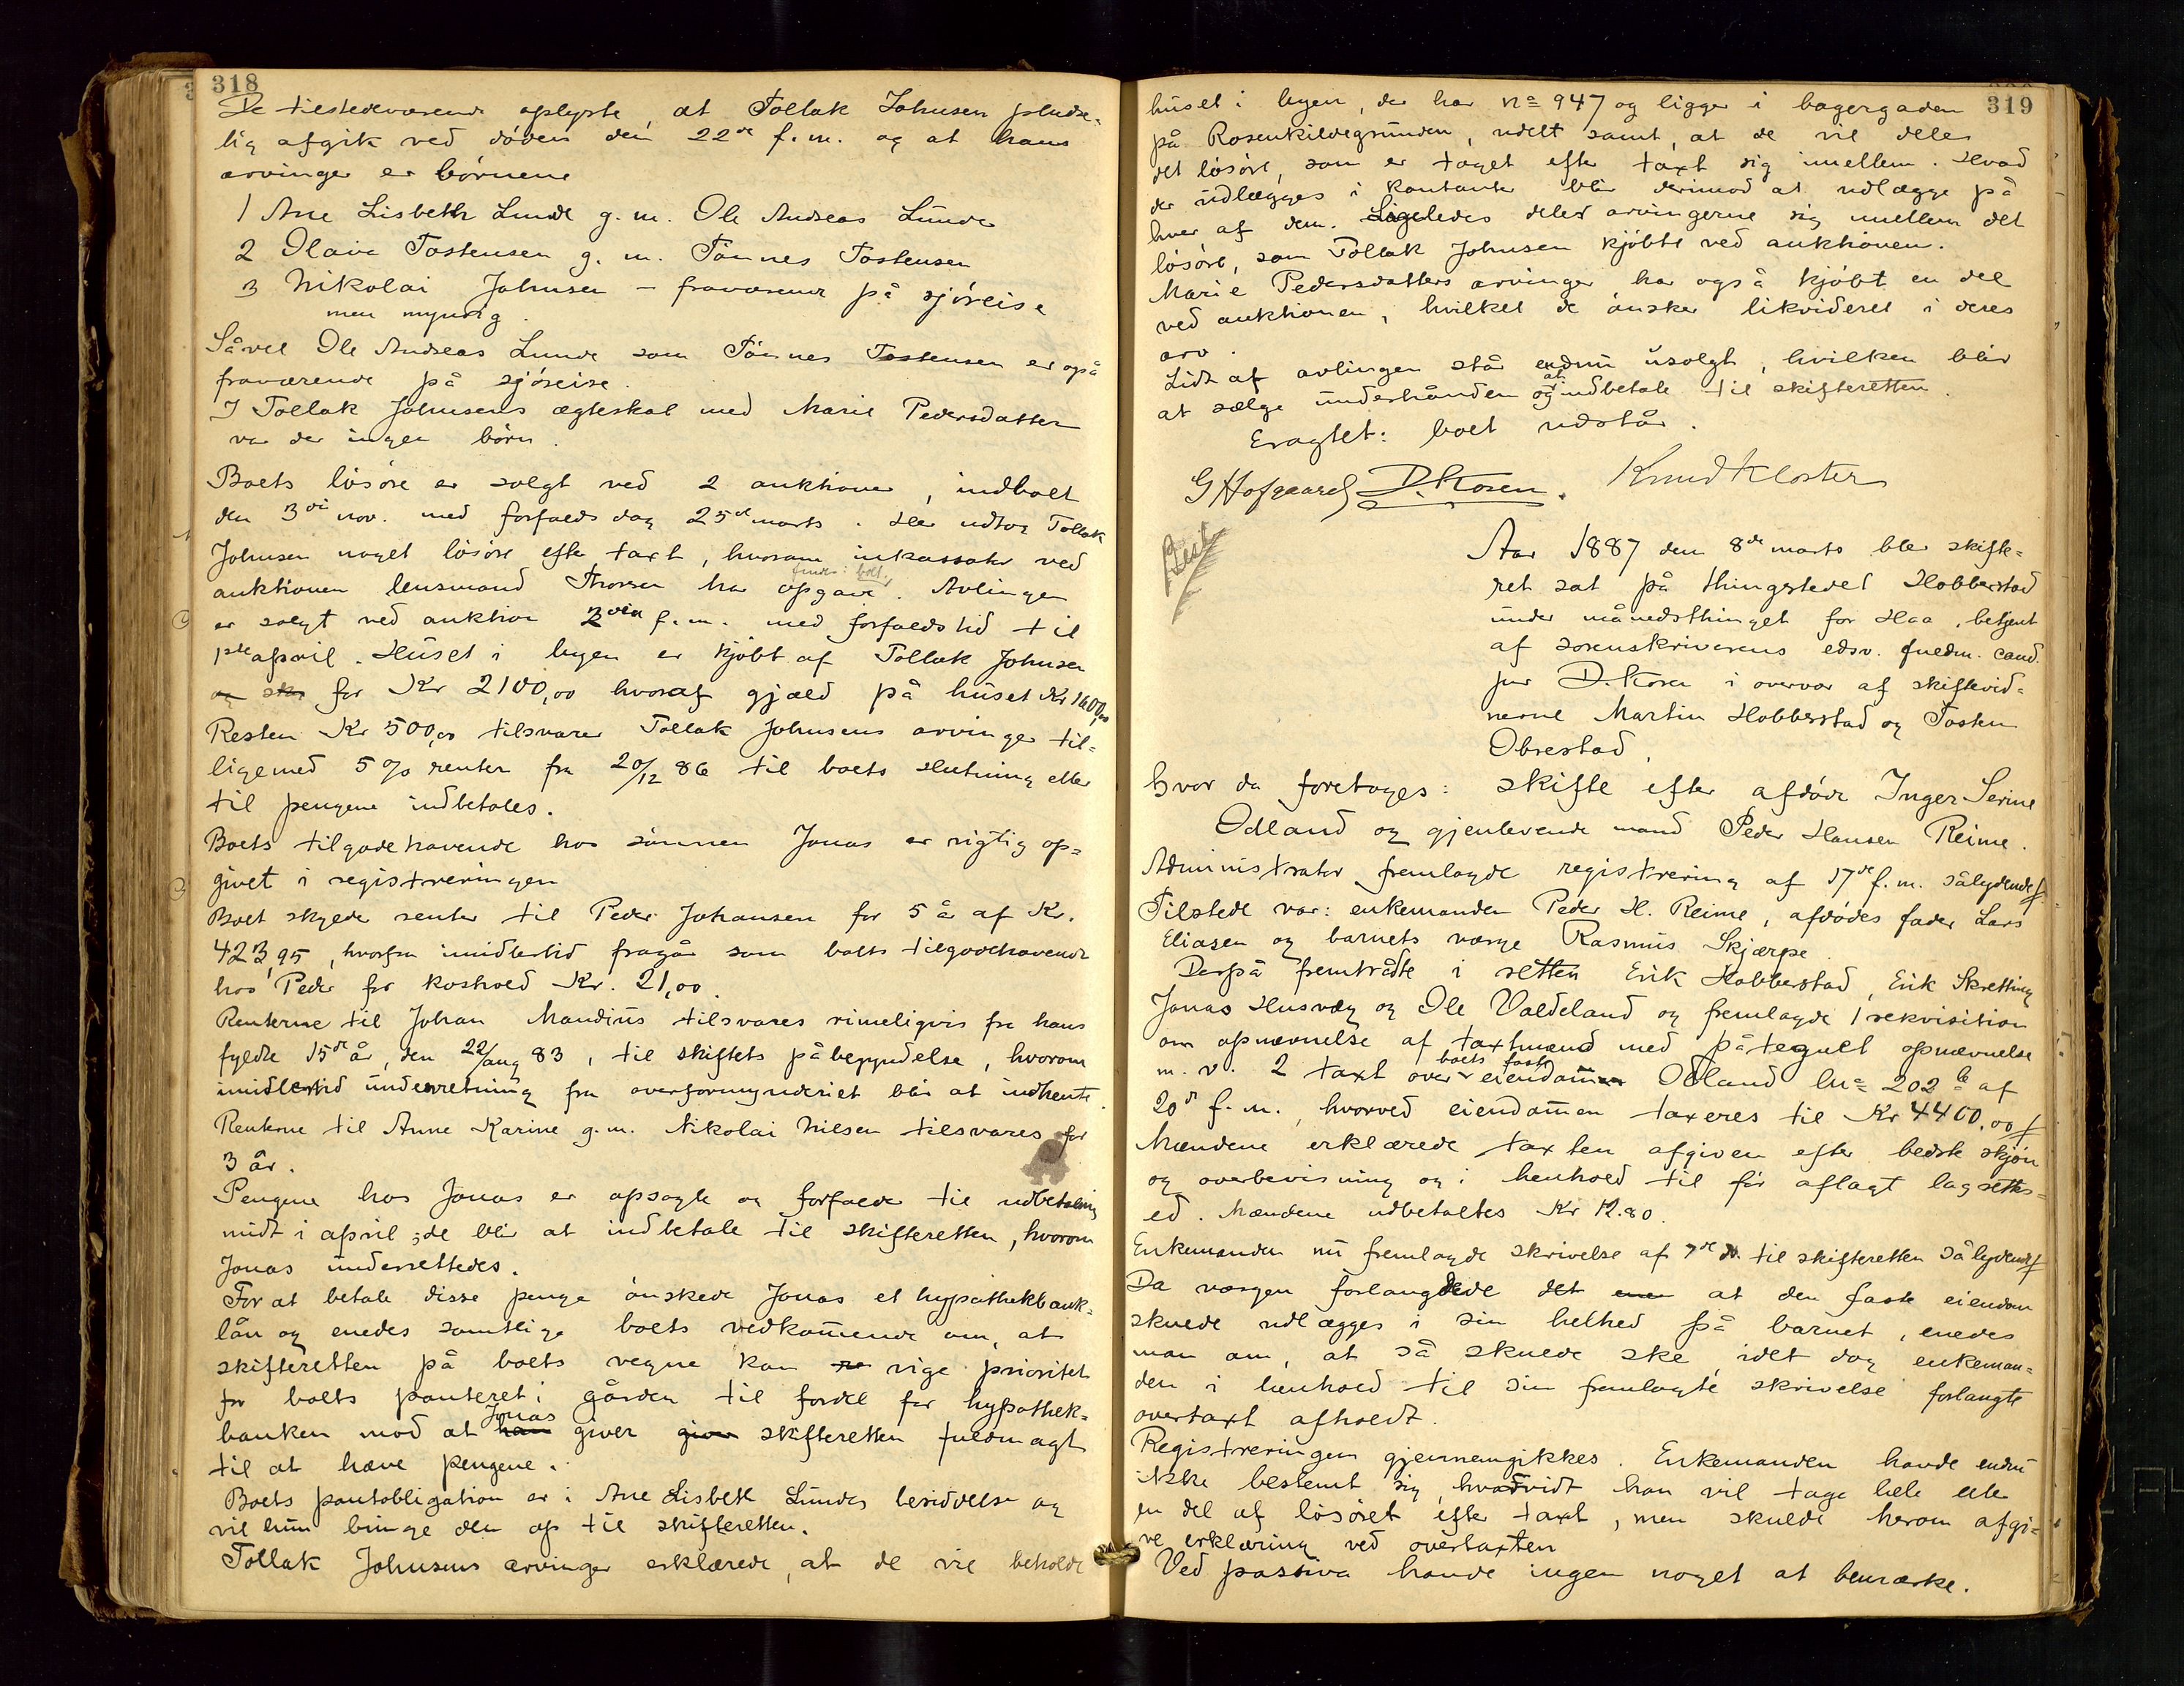 318
De tilstedeværende oplyste, at Tollak Johnsen pludse-
lig afgik ved døden den 22de f. m. og at hans
arvinger er børnene
1 Ane Lisbeth Lunde g. m. Ole Andreas Lunde
2 Olava Tostensen g. m. Tønnes Tostensen
3 Nikolai Johnsen – fraværende på sjøreise
men myndig.
Såvel Ole Andreas Lunde som Tønnes Tostensen er også
fraværende på sjøreise.
I Tollak Johnsens ægteskab med Marie Pedersdatter
var der ingen børn.
Boets løsøre er solgt ved 2 auktioner, indboet
den 3die nov. med forfaldsdag 25de marts. Her udtog Tollak
Johnsen noget løsøre efter taxt, hvorom inkassator ved
auktionen lensmand Thorsen har opgave. Avlingen
er solgt ved auktion 2den f. m. med forfaldstid til
1ste april. Huset i byen er kjøbt af Tollak Johnsen
og sk for Kr 2100,00 hvoraf gjæld på huset Kr 1600,00
Resten Kr 500,00 tilsvarer Tollak Johnsens arvinger til-
ligemed 5 % renter fra 20/12 86 til boets slutning eller
til pengene indbetales.
Boets tilgodehavende hos sønnen Jonas er rigtig op-
givet i registreringen
Boet skylder renter til Peder Johansen for 5 år af Kr.
423,95, hvorfra imidlertid fragår som boets tilgodehavende
hos Peder for kosthold Kr. 21,00.
Renterne til Johan Mandius tilsvares rimeligvis fra hans
fyldte 15de år, den 22/aug 83, til skiftets påbegyndelse, hvorom
imidlertid underretning fra overformynderiet blir at indhente.
Renterne til Anne Karine g. m. Nikolai Nilsen tilsvares for
3 år.
Pengene hos Jonas er opsagte og forfalder til udbetaling
midt i april; de blir at indbetale til skifteretten, hvorom
Jonas underrettedes.
For at betale disse penge ønskede Jonas et hypothekbank-
lån og enedes samtlige boets vedkommende om, at
skifteretten på boets vegne kan vige prioritet
for boets panteret i gården til fordel for hypothek-
banken mod at han Jonas giver giver skifteretten fuldmagt
til at hæve pengene.
Boets pantobligation er i Ane Lisbeth Lundes besiddelse og
vil hun bringe den op til skifteretten.
Tollak Johnsens arvinger erklærede, at de vil beholde
319
huset i byen, der har No 947 og ligger i bagergaden
på Rosenkildegrunden, udelt samt, at de vil dele
det løsøre, som er taget efter taxt sig imellem. Hvad
der udlægges i kontanter blir derimod at udlægge på
hver af dem. Ligeledes deler arvingerne sig imellem det
løsøre, som Tollak Johnsen kjøbte ved auktionen.
Marie Pedersdatters arvinger har også kjøbt en del
ved auktionen, hvilket de ønsker likvideret i deres
arv.
Lidt af avlingen står endnu usolgt, hvilken blir
at sælge underhånden og at indbetale til skifteretten.
Eragtet: boet udstår.
G Hofgaard D. Koren. Knud Kloster
Aar 1887 den 8de marts blev skifte-
ret sat på thingstedet Hobberstad
under månedsthinget for Haa, betjent
af sorenskriverens edsv. fuldm. cand.
jur D. Koren i overvær af skiftevid-
nerne Martin Hobberstad og Tosten
Obrestad,
hvor da foretoges: skifte efter afdøde Inger Serine
Odland og gjenlevende mand Peder Hansen Reime.
Administrator fremlagde registrering af 17de f. m. sålydende
Tilstede var: enkemanden Peder H. Reime, afdødes fader Lars
Eliasen og barnets værge Rasmus Skjærpe.
Derpå fremtrådte i retten Erik Hobberstad, Erik Skretting
Jonas Husvæg og Ole Voldeland og fremlagde 1 rekvisition
om opnævnelse af taxtmænd med påtegnet opnævnelse
m. v. 2 taxt over boets faste eiendommen Odland lno 202 b af
20de f. m., hvorved eiendommen taxeres til Kr 4400,00
Mændene erklærede taxten afgiven efter bedste skjøn
og overbevisning og i henhold til før aflagt lagrettes-
ed. Mændene udbetaltes Kr 12.80.
Enkemanden nu fremlagde skrivelse af 7de ds. til skifteretten sålydende
Da værgen forlangte det at den faste eiendom
skulde udlægges i sin helhed på barnet, enedes
man om, at så skulde ske, idet dog enkeman-
den i henhold til sin fremlagte skrivelse forlangte
overtaxt afholdt.
Registreringen gjennemgikkes. Enkemanden havde endnu
ikke bestemt sig, hvorvidt han vil tage hele eller
en del af løsøret efter taxt, men skulde herom afgi-
ve erklæring ved overtaxten
Ved passiva havde ingen noget at bemærke.